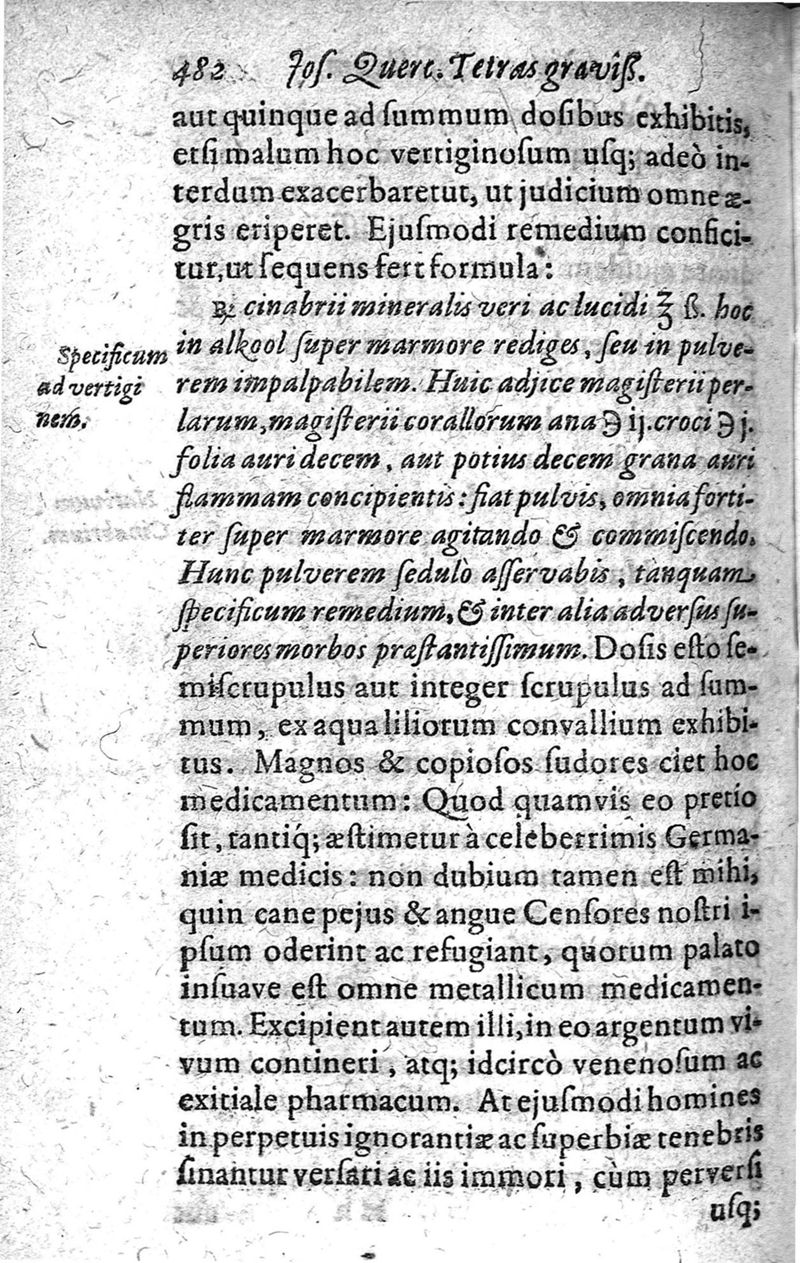 482 Joſ. Querc. Tetras graviſſ.
aut quinque ad ſummum doſibus exhibitis,
etſi malum hoc vertiginoſum uſq; adeò in-
terdum exacerbaretur, ut judicium omne æ-
gris eriperet. Ejuſmodi remedium confici-
tur, ut ſequens fert formula:
℞ cinabrii mineralis veri ac lucidi ℥ ß. hoc
in alkool ſuper marmore rediges, ſeu in pulve-
rem impalpabilem. Huic adjice magiſterii per-
larum, magiſterii corallorum ana ℈ ij. croci ℈ j.
folia auri decem, aut potius decem grana auri
flammam concipientis: fiat pulvis, omnia forti-
ter ſuper marmore agitando & commiſcendo.
Hunc pulverem ſedulò aſſervabis, tanquam
ſpecificum remedium, & inter alia adverſus ſu-
periores morbos præſtantiſſimum. Doſis eſto ſe-
miſcrupulus aut integer ſcrupulus ad ſum-
mum, ex aqua liliorum convallium exhibi-
tus. Magnos & copioſos ſudores ciet hoc
medicamentum: Quod quamvis eo pretio
ſit, tantiq́; æſtimetur à celeberrimis Germa-
niæ medicis: non dubium tamen eſt mihi,
quin cane pejus & angue Cenſores noſtri i-
pſum oderint ac refugiant, quorum palato
inſuave eſt omne metallicum medicamen-
tum. Excipient autem illi, in eo argentum vi-
vum contineri, atq; idcircò venenoſum ac
exitiale pharmacum. At ejuſmodi homines
in perpetuis ignorantiæ ac ſuperbiæ tenebris
ſinantur verſari ac iis immori, cùm perverſi
uſq;
Specificum
ad vertigi
nem.